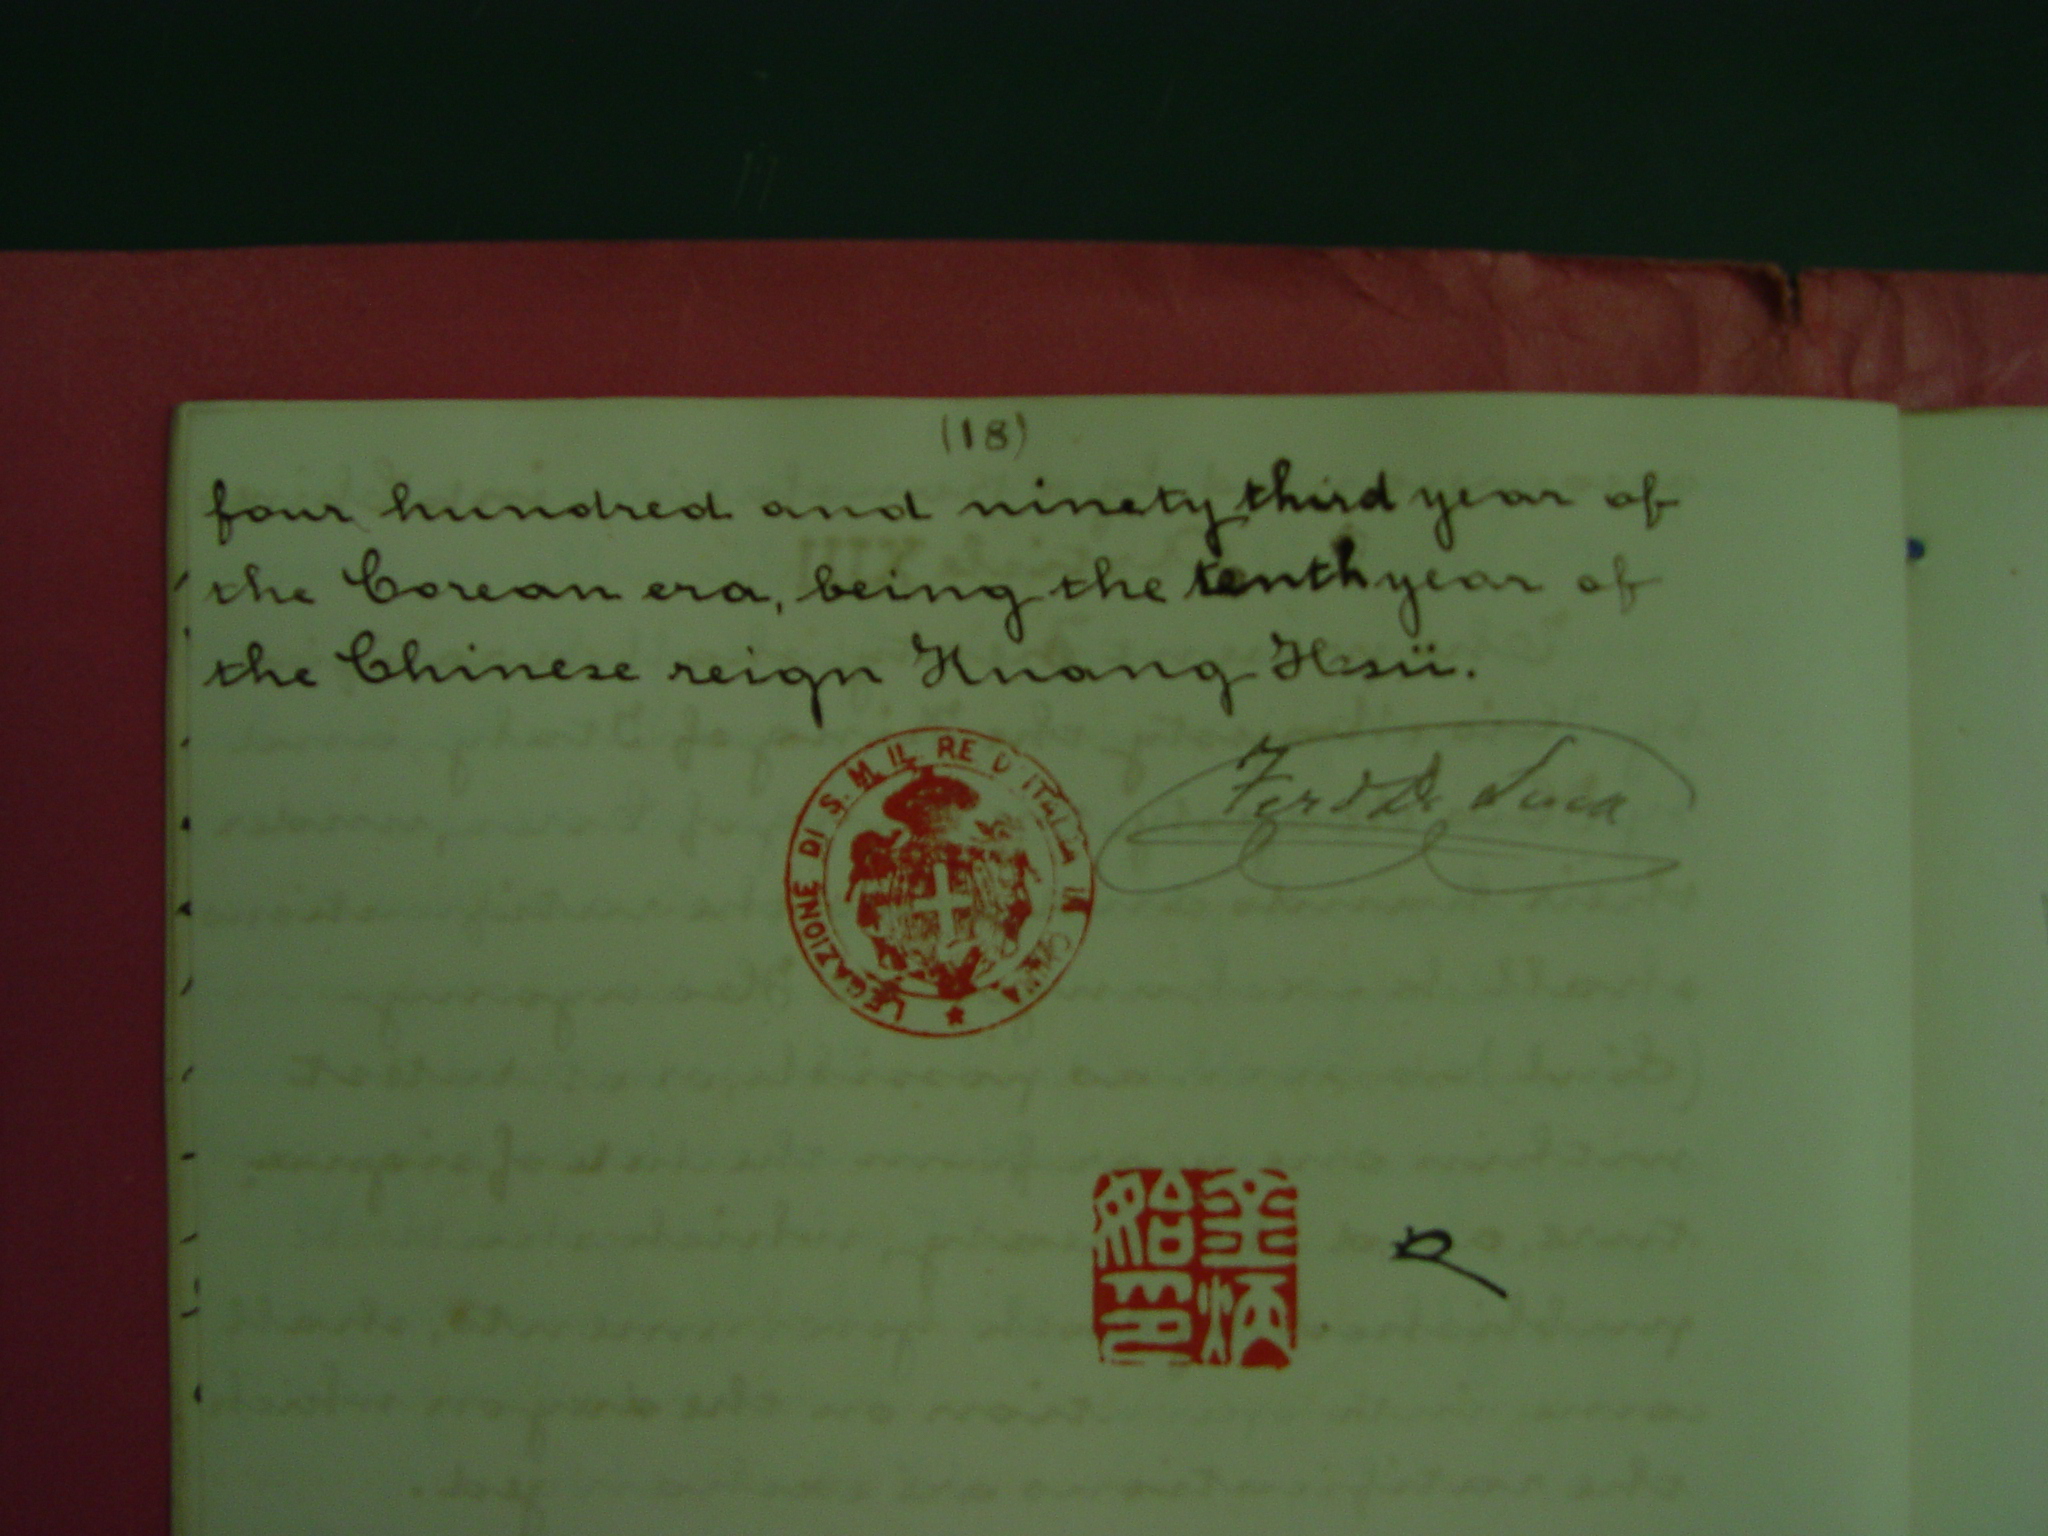 (18)
four hundred and ninety third year of
the Corean era, being the tenth year of
the Chinese reign Kuang Hsü.
LEGAZIONE DI S. M. IL RE D'ITALIA IN CHINA
Ferd De Luca
金炳
始印